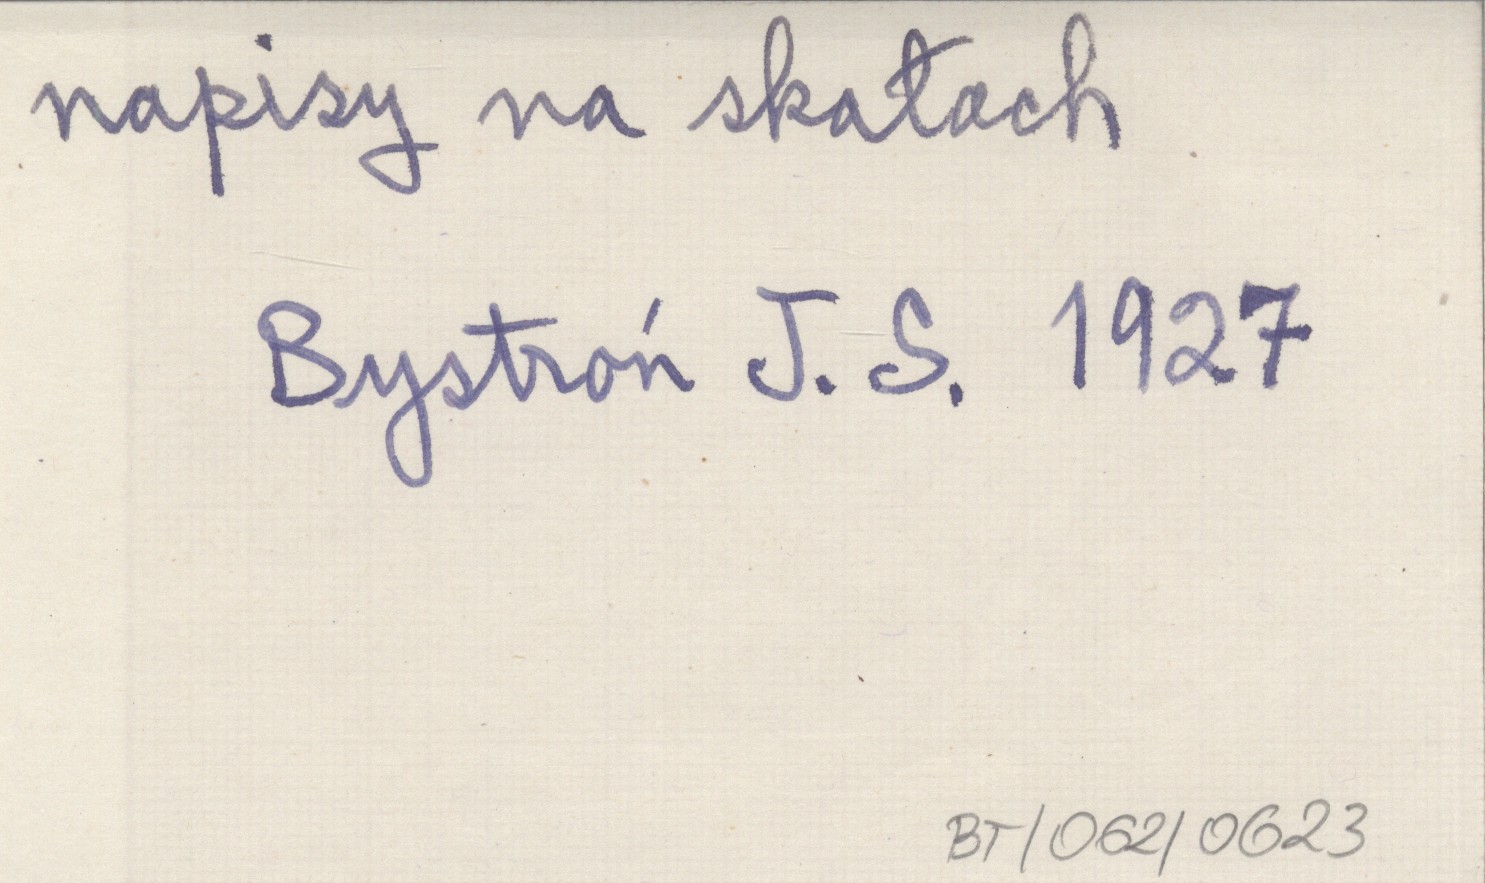 napisy na skałach
Bystroń J. S. 1927
BT/062/0623